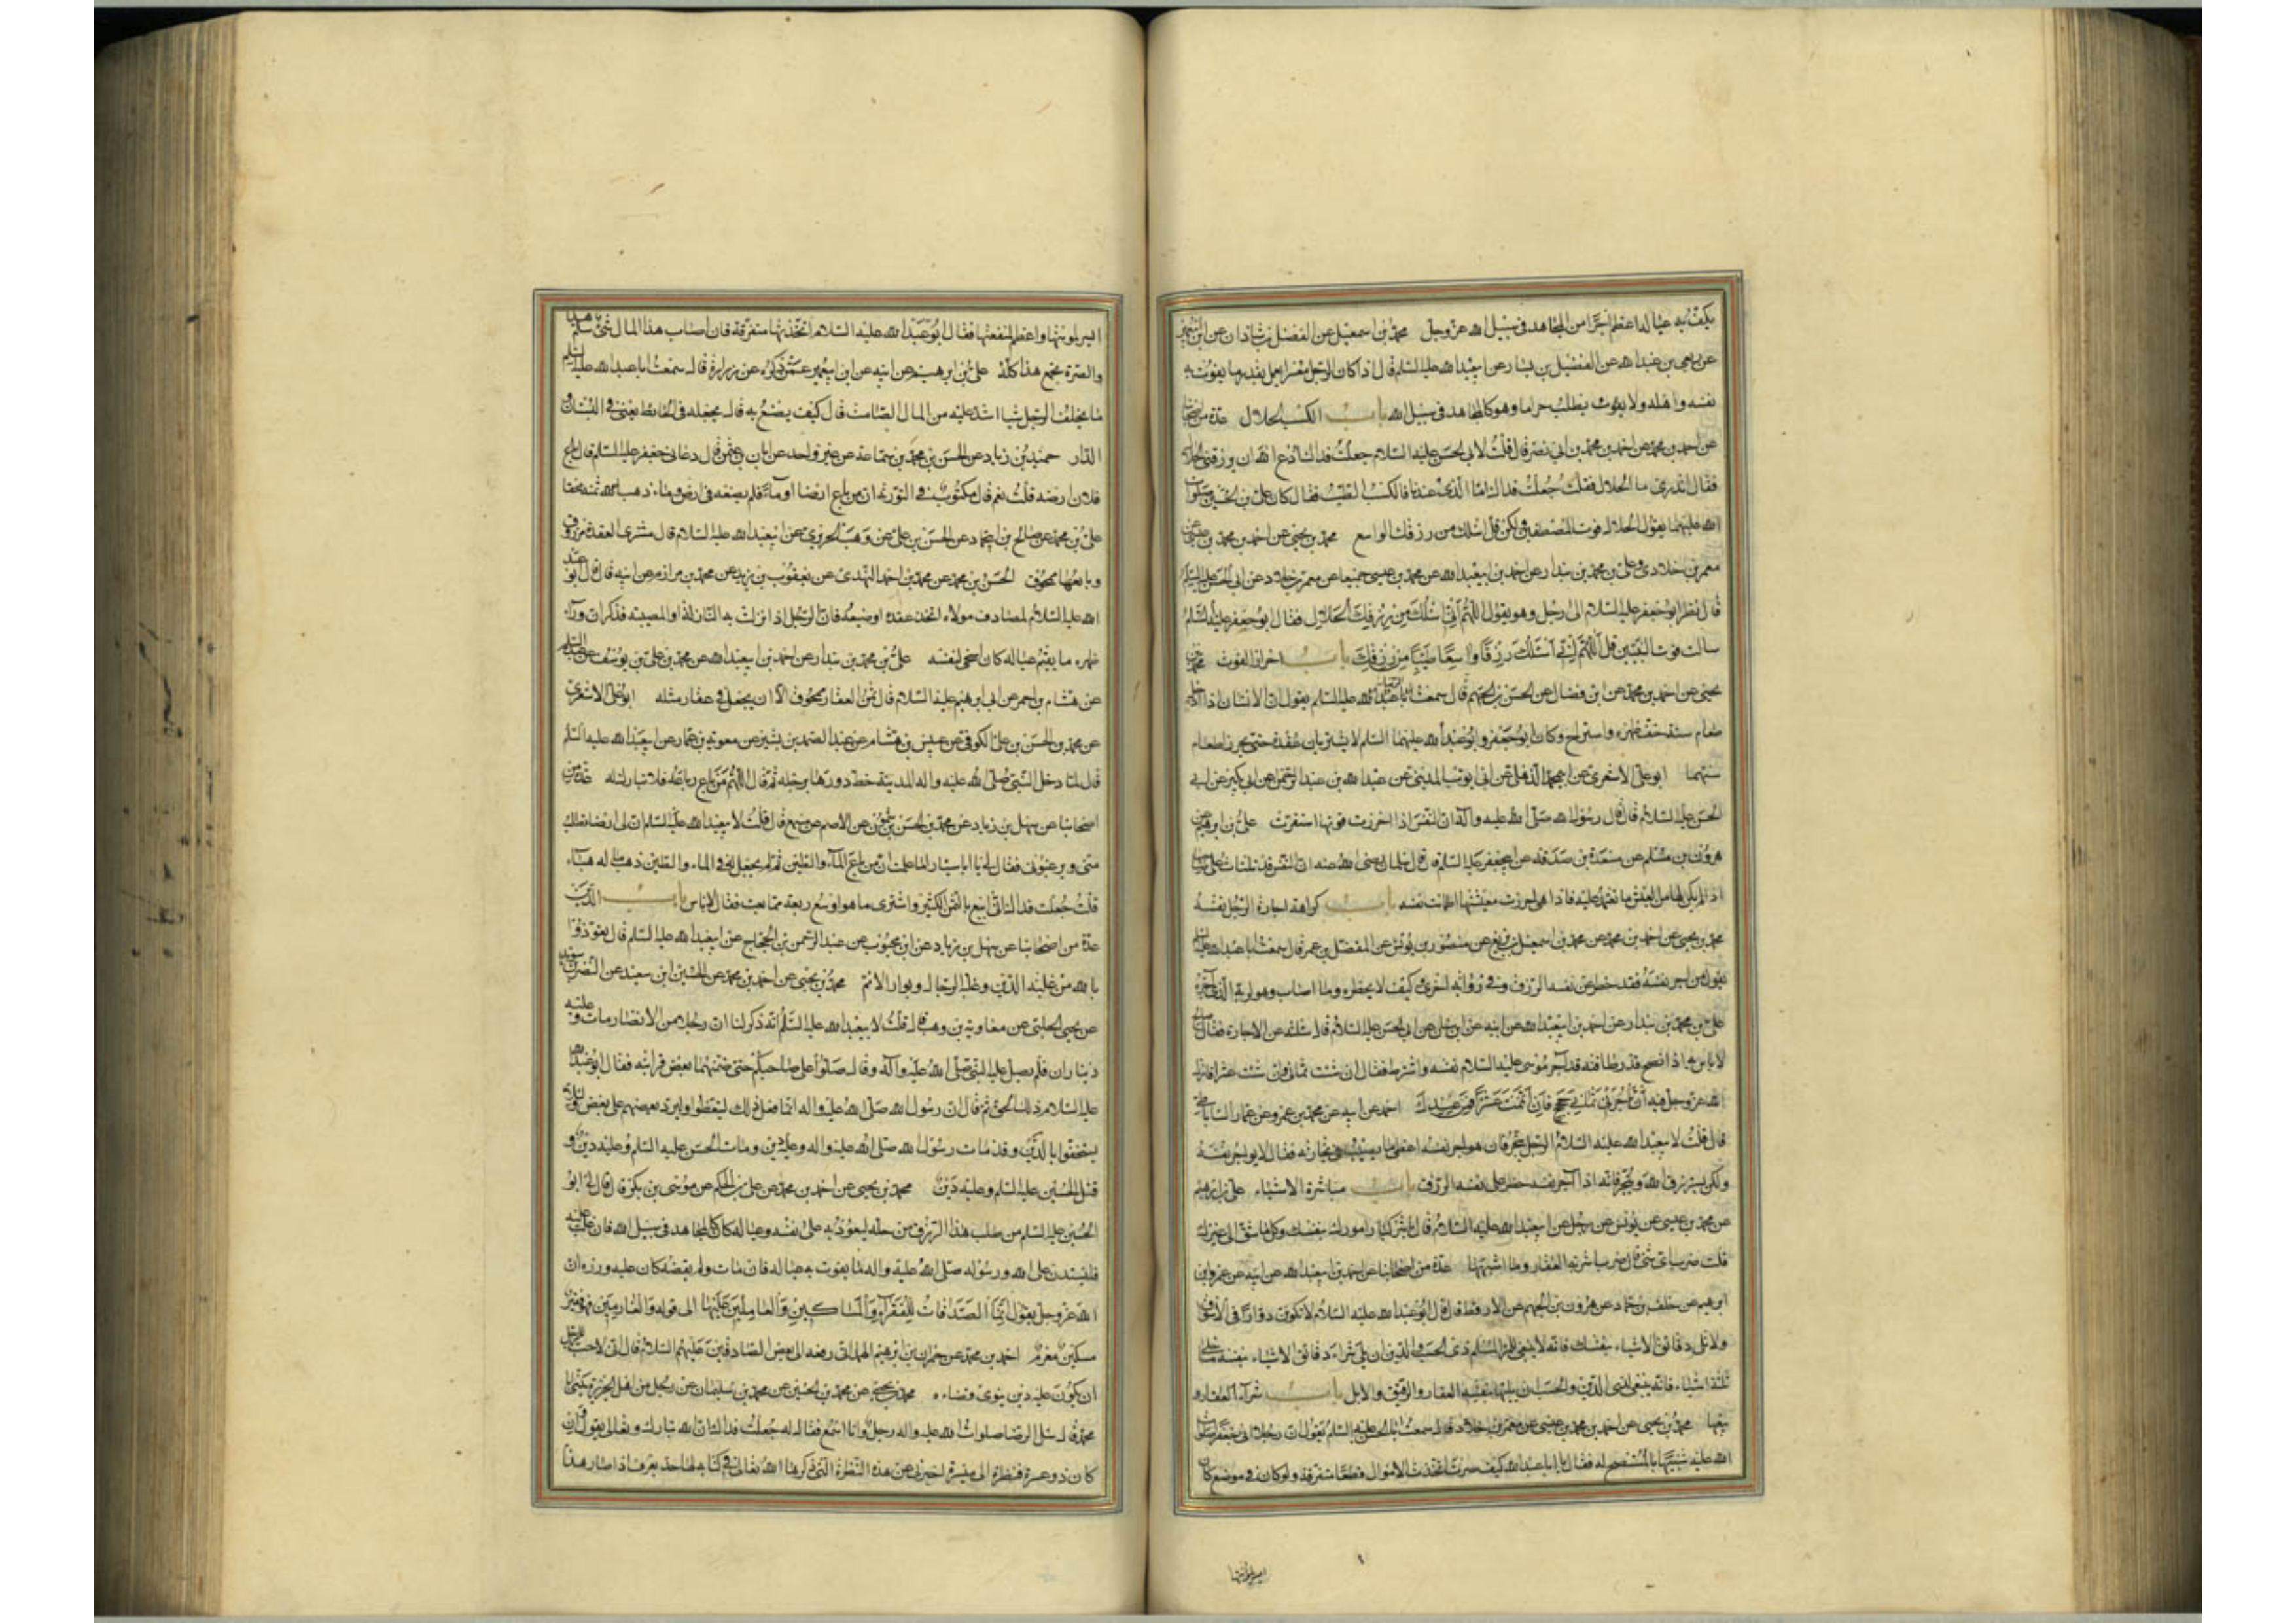 يكف به عياله اعظم اجرا من المجاهد في سبيل الله عز وجل محمد بن اسمعيل عن الفضل بن شاذان عن ابن ابي عمير
عن ربعي بن عبد الله عن الفضيل بن يسار عن ابيعبد الله عليه السلم قال اذا كان الرجل معسرا يعمل بقدر ما يقوت به
نفسه واهله ولا يطلب حراما وهو كالمجاهد في سبيل الله باب الكسب الحلال عدة من اصحابنا
عن احمد بن محمد عن احمد بن محمد بن ابي نصر قال قلت لابي الحسن عليه السلام جعلت فداك ادع الله ان يرزقني الحلال
فقال اتدري ما الحلال فقلت جعلت فداك اما الذي عندنا فالكسب الطيب فقال كان علي بن الحسين صلوات
الله عليهما يقول الحلال قوت المصطفين ولكن قل اسئلك من رزقك الواسع محمد بن يحيى عن احمد بن محمد بن عيسى عن
معمر بن خلاد وعلي بن محمد بن بندار عن احمد بن ابيعبد الله عن محمد بن عيسى جميعا عن معمر بن خلاد عن ابي الحسن عليه السلم
قال نظر ابو جعفر عليه السلام الى رجل وهو يقول اللهم اني اسئلك من رزقك الحلال فقال ابو جعفر عليه السلم
سالت قوت النبيين قل اللهم اني اسئلك رزقا واسعا طيبا من رزقك باب احراز القوت محمد بن
يحيى عن احمد بن محمد عن ابن فضال عن الحسن بن الجهم قال سمعت الرضا عليه السلم يقول ان الانسان اذا ادخل
طعام سنته خف ظهره واستراح وكان ابو جعفر وابو عبد الله عليهما السلم لا يشتريان عقدة حتى يحرزا طعام
سنتهما ابو علي الاشعري عن ابي محمد الذهلي عن ابي ايوب المديني عن عبد الله بن عبد الرحمن عن ابن بكير عن ابي
الحسن عليه السلام قال قال رسول الله صلى الله عليه واله ان النفس اذا احرزت قوتها استقرت علي بن ابرهيم عن
هرون بن مسلم عن مسعدة بن صدقة عن ابيجعفر عليه السلم قال قال سلمان رضى الله عنه ان النفس قد تلتاث على صاحبها
اذا لم يكن لها من العيش ما تعتمد عليه فاذا هي احرزت معيشتها اطمانت نفسه باب كراهة اجارة الرجل نفسه
محمد بن يحيى عن احمد بن محمد عن محمد بن اسمعيل بن بزيع عن منصور بن يونس عن المفضل بن عمر قال سمعت ابا عبد الله عليه السلم
يقول من اجر نفسه فقد حظر على نفسه الرزق وفي رواية اخرى كيف لا يحظره وما اصاب وهو لربه الذي آجره
علي بن محمد بن بندار عن احمد بن ابيعبد الله عن ابيه عن ابن سنان عن ابي الحسن عليه السلام قال سئلته عن الاجارة فقال صالح
لا باس به اذا نصح قدر طاقته قد آجر موسى عليه السلام نفسه واشترط فقال ان شئت ثماني وان شئت عشرا فانزل
الله عز وجل فيه ان تاجرني ثماني حجج فان اتممت عشرا فمن عندك احمد عن ابيه عن محمد بن عمرو عن عمار الساباطي
قال قلت لابيعبد الله عليه السلام الرجل يتجر فان هو اجر نفسه اعطي ما يصيب في تجارته فقال لا يواجر نفسه
ولكن يسترزق الله ويتجر فانه اذا آجر نفسه حظر على نفسه الرزق باب مباشرة الاشياء علي بن ابرهيم
عن محمد بن عيسى عن يونس عن رجل عن ابيعبد الله عليه السلام قال باشر كبار امورك بنفسك وكل ما شق الى غيرك
قلت ضرب اي شئ قال ضرب اشرية العقار وما اشبهها عدة من اصحابنا عن احمد بن ابيعبد الله عن ابيه عن عمرو بن
ابرهيم عن خلف بن حماد عن هرون بن الجهم عن الارقط قال قال ابو عبد الله عليه السلام لا تكونن دوارا في الاسواق
ولا تل دقائق الاشياء بنفسك فانه لا ينبغي للمرء المسلم ذي الحسب والدين ان يلي شراء دقائق الاشياء بنفسه ما خلا
ثلثة اشياء فانه ينبغي لذي الدين والحسب ان يليها بنفسه العقار والرقيق والابل باب شراء العقار و
بيعها محمد بن يحيى عن احمد بن محمد بن عيسى عن معمر بن خلاد قال سمعت ابا الحسن عليه السلم يقول ان رجلا اتى جعفرا صلوات
الله عليه شبيها بالمستنصح له فقال يا ابا عبد الله كيف صرت اتخذت الاموال قطعا متفرقة ولو كان في موضع كان
ايسر لمؤنتها
ايسر لمؤنتها واعظم لمنفعتها فقال ابو عبد الله عليه السلام اتخذتها متفرقة فان اصاب هذا المال شئ سلم هذا
والصرة تجمع هذا كله علي بن ابرهيم عن ابيه عن ابن ابيعمير عمن ذكره عن زرارة قال سمعت ابا عبد الله عليه السلم
ما يخلف الرجل شيا اشد عليه من المال الصامت قال كيف يصنع به قال يجعله في الحائط يعني في البستان و
الدار حميد بن زياد عن الحسن بن محمد بن سماعة عن غير واحد عن ابان بن عثمن قال دعاني جعفر عليه السلم قال باع
فلان ارضه قلت نعم قال مكتوب في التورية ان من باع ارضا او ماء فلم يضعه في ارض وماء ذهب ثمنه محقا
علي بن محمد عن صالح بن ابي حماد عن الحسن بن علي عن وهب الحريري عن ابيعبد الله عليه السلام قال مشتري العقدة مرزوق
وبائعها ممحوق الحسن بن محمد عن محمد بن احمد النهدي عن يعقوب بن يزيد عن محمد بن مرازم عن ابيه قال قال ابو عبد
الله عليه السلام لمصادف مولاه اتخذ عقدة او ضيعة فان الرجل اذا نزلت به النازلة او المصيبة فذكر ان وراء
ظهره ما يقيم عياله كان اسخى لنفسه علي بن محمد بن بندار عن احمد بن ابيعبد الله عن محمد بن علي بن يوسف عن عبد السلم
عن هشام بن احمر عن ابي ابرهيم عليه السلام قال ثمن العقار ممحوق الا ان يجعل في عقار مثله ابو علي الاشعري
عن محمد بن الحسن بن علي الكوفي عن عبيس بن هشام عن عبد الصمد بن بشير عن معوية بن عمار عن ابيعبد الله عليه السلم
قال لما دخل النبي صلى الله عليه واله المدينة خط دورها برجله ثم قال اللهم من باع رباعه فلا تبارك له عدة من
اصحابنا عن سهل بن زياد عن محمد بن الحسن بن شمون عن الاصم عن مسمع قال قلت لابيعبد الله عليه السلم ان لي ارضا تطلب
مني ويرغبوني فقال لي يا ابا سيار اما علمت ان من باع الماء والطين ثم لم يجعل في الماء والطين ذهب ماله هباء
قلت جعلت فداك اني ابيع بالثمن الكثير واشتري ما هو اوسع ربعة مما بعت فقال لا باس باب الدين
عدة من اصحابنا عن سهل بن زياد عن ابن محبوب عن عبد الرحمن بن الحجاج عن ابيعبد الله عليه السلم قال تعوذوا
بالله من غلبة الدين وغلبة الرجال وبوار الايم محمد بن يحيى عن احمد بن محمد عن الحسين ابن سعيد عن النضر بن سويد
عن يحيى الحلبي عن معاوية بن وهب قال قلت لابيعبد الله عليه السلم انه ذكر لنا ان رجلا من الانصار مات وعليه
ديناران فلم يصل عليه النبي صلى الله عليه واله وقال صلوا على صاحبكم حتى ضمنهما بعض قرابته فقال ابو عبد الله
عليه السلام ذلك الحق ثم قال ان رسول الله صلى الله عليه واله انما فعل ذلك ليتعظوا وليرد بعضهم على بعض ولئلا
يستخفوا بالدين وقد مات رسول الله صلى الله عليه واله وعليه دين ومات الحسن عليه السلم وعليه دين و
قتل الحسين عليه السلم وعليه دين محمد بن يحيى عن احمد بن محمد عن علي بن الحكم عن موسى بن بكر قال قال لي ابو
الحسن عليه السلم من طلب هذا الرزق من حله ليعود به على نفسه وعياله كان كالمجاهد في سبيل الله فان غلب عليه
فليستدن على الله ورسوله صلى الله عليه واله ما يقوت به عياله فان مات ولم يقضه كان عليه وزره ان
الله عز وجل يقول انما الصدقات للفقراء والمساكين والعاملين عليها الى قوله والغارمين فهو فقير
مسكين مغرم احمد بن محمد عن حمدان بن ابرهيم الهمداني رفعه الى بعض الصادقين عليهم السلام قال اني لاحب للرجل
ان يكون عليه دين ينوي قضاءه محمد بن يحيى عن محمد بن الحسين عن محمد بن سليمان عن رجل من اهل الجزيرة يكنى ابا
محمد قال سئل الرضا صلوات الله عليه واله رجل وانا اسمع فقال له جعلت فداك ان الله تبارك وتعالى يقول وان
كان ذو عسرة فنظرة الى ميسرة اخبرني عن هذه النظرة التي ذكرها الله تعالى في كتابه لها حد يعرف اذا صار هذا